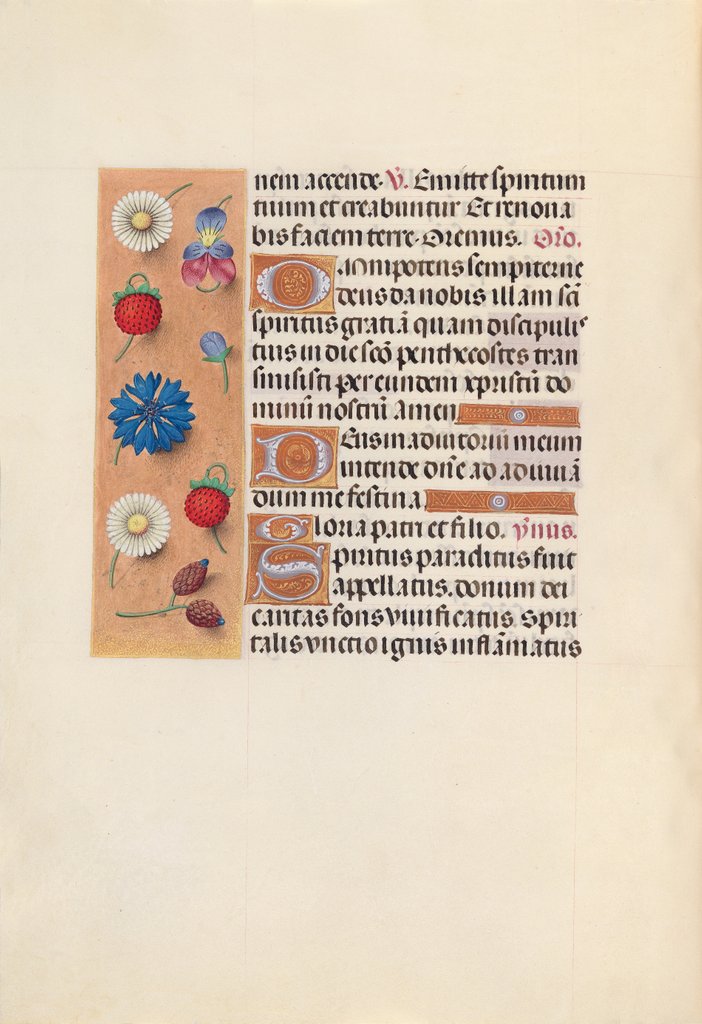 nem accende. V̄. Emitte spiritum
tuum et creabuntur Et renoua
bis faciem terre. Oremus. Or̄o.
Omnipotens sempiterne
deus da nobis illam sc̄i
spiritus gratiā quam discipulis
tuis in die sc̄o penthecostes tran
smisisti per eundem xpristū do
minū nostrū amen
Deus in adiutoriū meum
intende dn̄e ad adiuuā
dum me festina.
Gloria patri et filio. ymus.
Spiritus paraclitus fuit
appellatus. donum dei
caritas fons viuificatus. Spiri
talis vnctio ignis inflāmatus